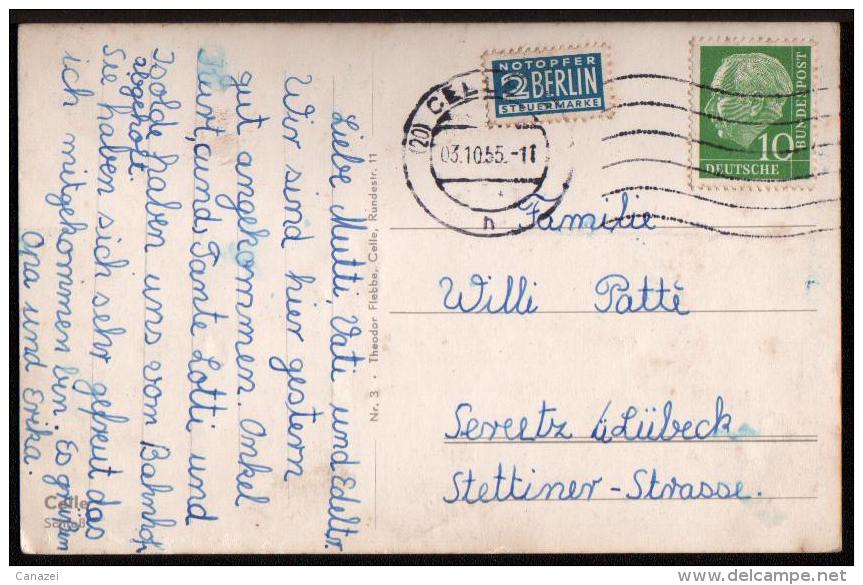 Liebe Mutti, Vati und Edeltr.
Wir sind hier gestern
gut angekommen. Onkel
Kurt, und Tante Lotti und
Isolde haben uns vom Bahnhof
abgeholt.
Sie haben sich sehr gefreut das
ich mitgekommen bin. Es grüßen
Opa und Erika.
Celle
Nr. 3 · Theodor Flebbe, Celle, Rundestr. 11
(20) CEL
03.10.55.-11
h
NOTOPFER
2 BERLIN
STEUERMARKE
10
DEUTSCHE
BUNDESPOST
Familie
Willi Patté
Sereetz b/Lübeck
Stettiner-Strasse.
Canazei
delcampe.net